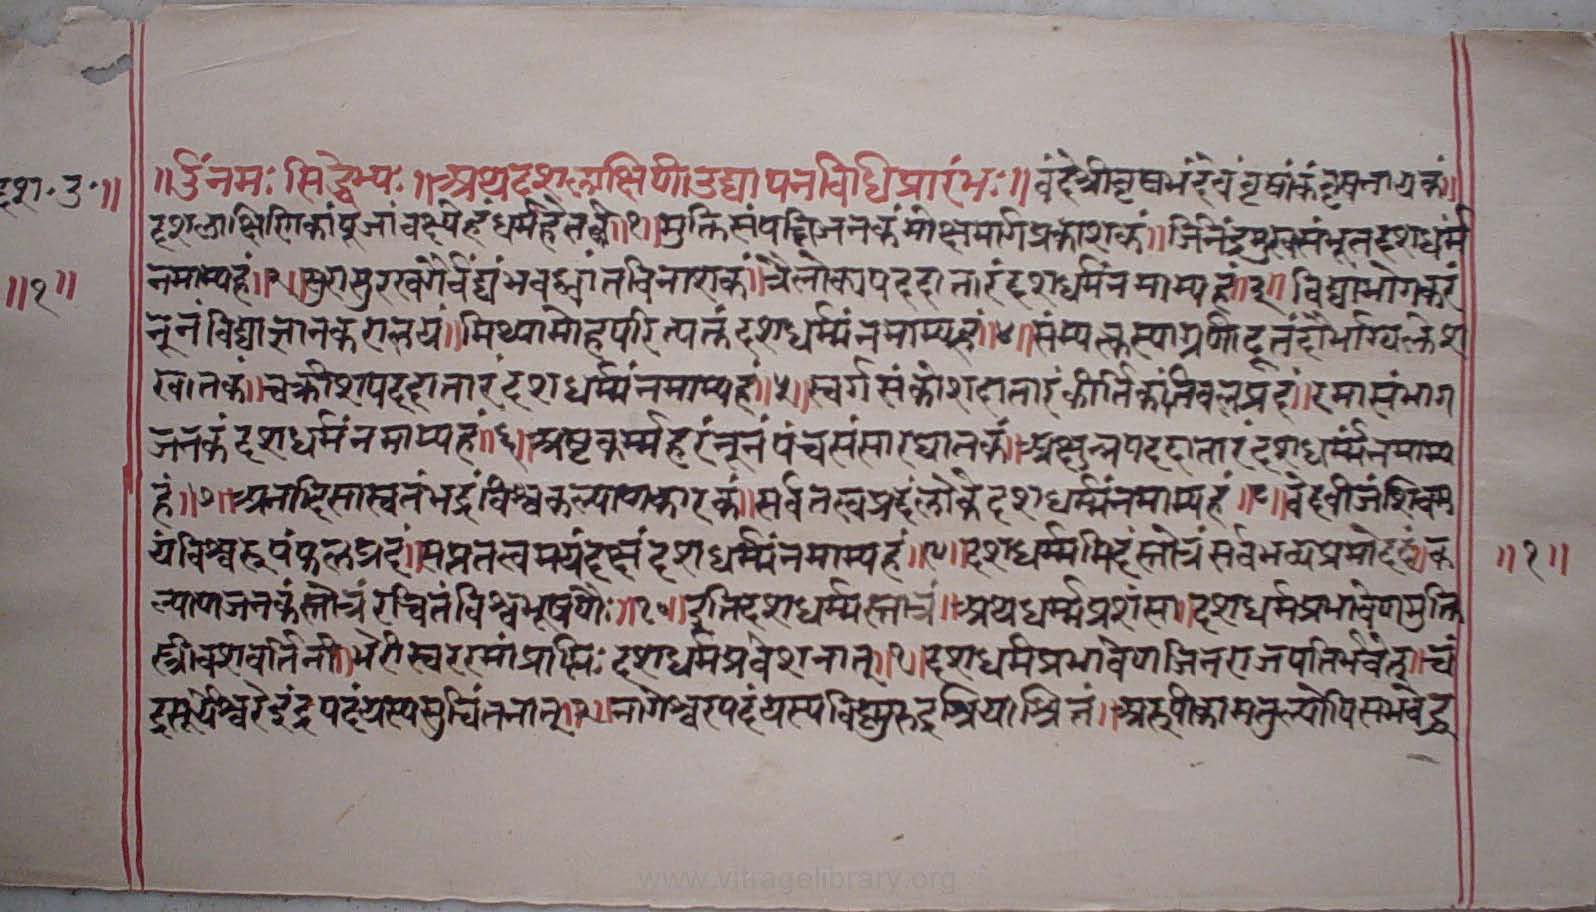 दश. उ. ॥
॥ ॐ नमः सिद्धेभ्यः ॥ अथ दशलाक्षिणी उद्यापन विधि प्रारंभः ॥ वंदे श्री वृषभं देवं वृषांकं वृषनायकं ॥
दशलाक्षिणिकां पूजां वक्ष्येहं धर्महेतवे ॥ १ ॥ मुक्तिसंपद्विजनकं मोक्षमार्गप्रकाशकं ॥ जिनेंद्रमुखसंभूतं दशधर्मं
नमाम्यहं ॥ २ ॥ सुरासुरखगैर्वंद्यं भवभ्रांतविनाशकं ॥ त्रैलोक्यपददातारं दशधर्मं नमाम्यहं ॥ ३ ॥ विद्याभोगकरं
नूनं विद्याज्ञानकरालयं ॥ मिथ्यामोहपरित्यक्तं दशधर्म्मं नमाम्यहं ॥ ४ ॥ संम्यक्तस्याग्रणीदूतं दौर्भाग्यक्लेश
खातकं ॥ चक्रीशपददातारं दशधर्म्मं नमाम्यहं ॥ ५ ॥ स्वर्गसंकोशदातारं कीर्तिकांतिबलप्रदं ॥ रमासंभाग
जनकं दशधर्मं नमाम्यहं ॥ ६ ॥ अष्टकर्म्महरं नूनं पंचसंसारघातकं ॥ अक्षुन्नपददातारं दशधर्म्मं नमाम्य
हं ॥ ७ ॥ अनादिसास्वतं भद्रं विश्वकल्याणकारकं ॥ सर्वतत्वप्रदं लोके दशधर्म्मं नमाम्यहं ॥ ८ ॥ वेदबीजं शिवम
यं विश्वरूपं फलप्रदं ॥ सप्ततत्वमयं दक्षं दशधर्म्मं नमाम्यहं ॥ ९ ॥ दशधर्म्ममिदं स्तोत्रं सर्वभव्यप्रमोदकृं ॥ क
ल्याणजनकं स्तोत्रं रचितं विश्वभूषणैः ॥ १० ॥ इति दशधर्म्मस्तोत्रं ॥ अथ धर्म्मप्रशंसा ॥ दशधर्मप्रभावेण मुक्ति
स्त्रीवशवर्तिनी ॥ भैरीस्वररमां प्राप्तिः दशधर्मप्रवेशनात् ॥ १ ॥ दशधर्मप्रभावेण जिनराजपतिर्भवेत् ॥ चं
द्रसूर्येश्वरैइंद्रपदं यस्य सुचिंतनात् ॥ २ ॥ नागेश्वरपदं यस्य विष्णुरुद्रश्रियाश्रितं ॥ अरूपीकामतुल्योपि संभवेद्ध
॥ १ ॥
॥ १ ॥
www.vitragelibrary.org